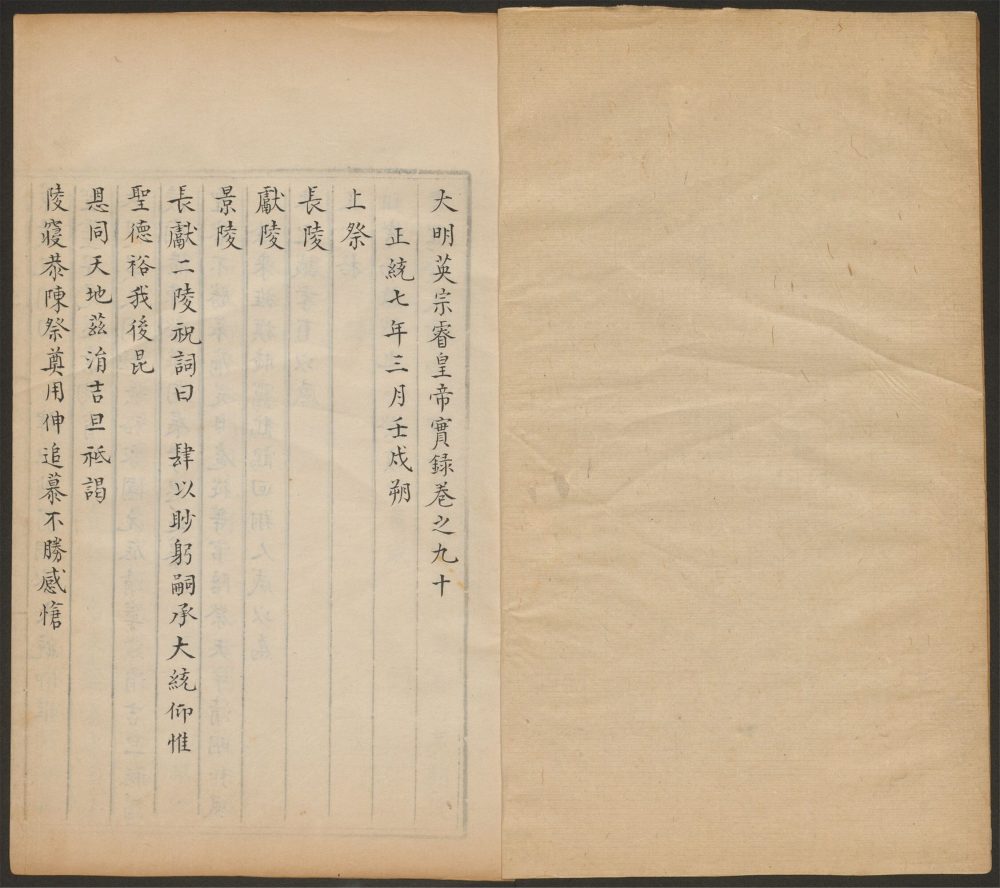 大明英宗睿皇帝實録卷之九十
正統七年三月壬戌朔
上祭
長陵
獻陵
景陵
長獻二陵祝詞曰 肆以眇躬嗣承大統仰惟
聖德裕我後昆
恩同天地茲涓吉旦祗謁
陵寢恭陳祭奠用伸追慕不勝感愴